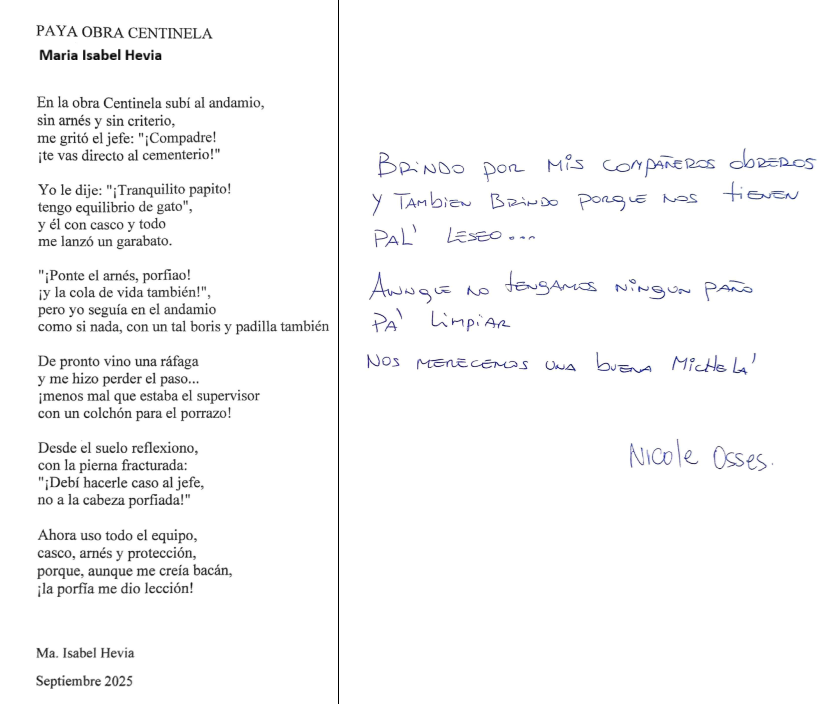 PAYA OBRA CENTINELA
Maria Isabel Hevia
En la obra Centinela subí al andamio,
sin arnés y sin criterio,
me gritó el jefe: "¡Compadre!
¡te vas directo al cementerio!"
Yo le dije: "¡Tranquilito papito!
tengo equilibrio de gato",
y él con casco y todo
me lanzó un garabato.
"¡Ponte el arnés, porfiao!
¡y la cola de vida también!",
pero yo seguía en el andamio
como si nada, con un tal boris y padilla también
De pronto vino una ráfaga
y me hizo perder el paso...
¡menos mal que estaba el supervisor
con un colchón para el porrazo!
Desde el suelo reflexiono,
con la pierna fracturada:
"¡Debí hacerle caso al jefe,
no a la cabeza porfiada!"
Ahora uso todo el equipo,
casco, arnés y protección,
porque, aunque me creía bacán,
¡la porfía me dio lección!
Ma. Isabel Hevia
Septiembre 2025
BRINDO POR MIS COMPAÑEROS OBREROS
Y TAMBIEN BRINDO PORQUE NOS TIENEN
PAL' LESEO...
AUNQUE NO TENGAMOS NINGUN PAÑO
PA' LIMPIAR
NOS MERECEMOS UNA BUENA MICHELA'
Nicole Osses.